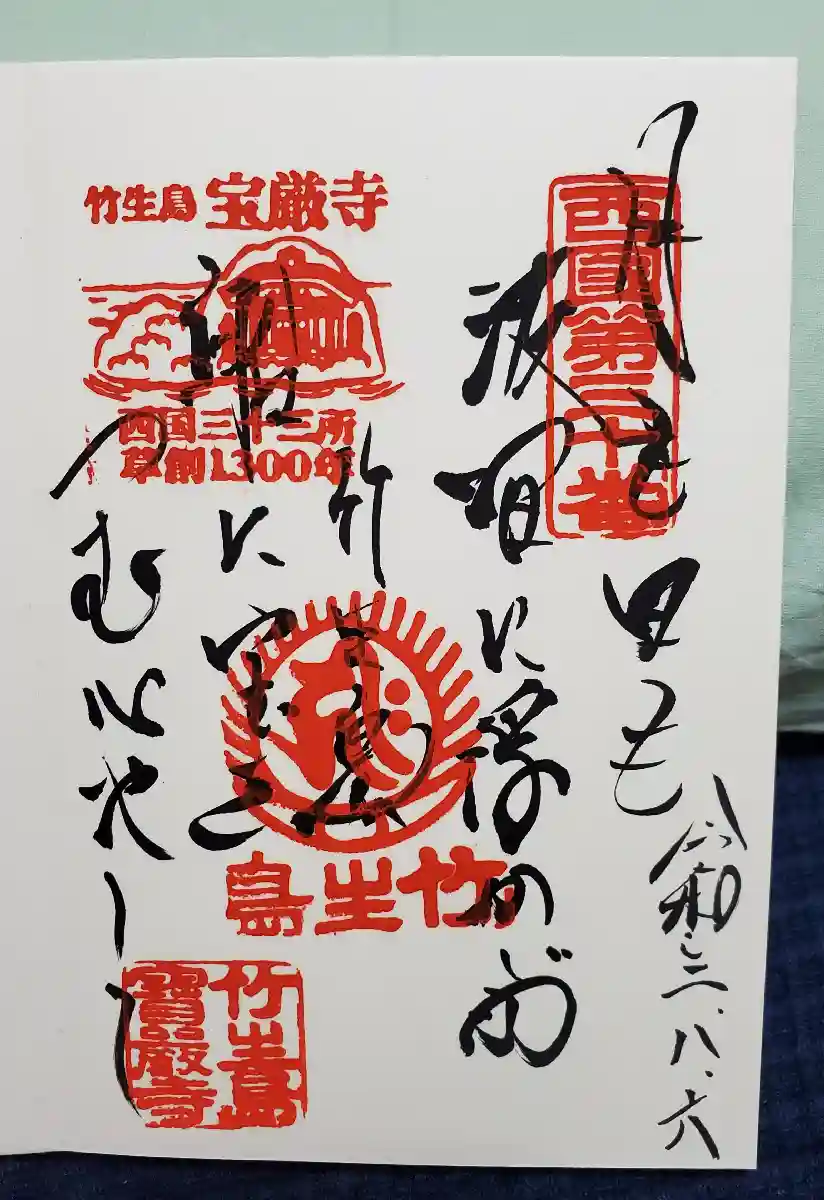 西國第三十番
月も日も
波間に浮かぶ
竹生島
船に宝を
つむ心地して
令和二、八、六
竹生島 宝厳寺
西国三十三所
草創1300年
竹生島
竹生島
寶厳寺